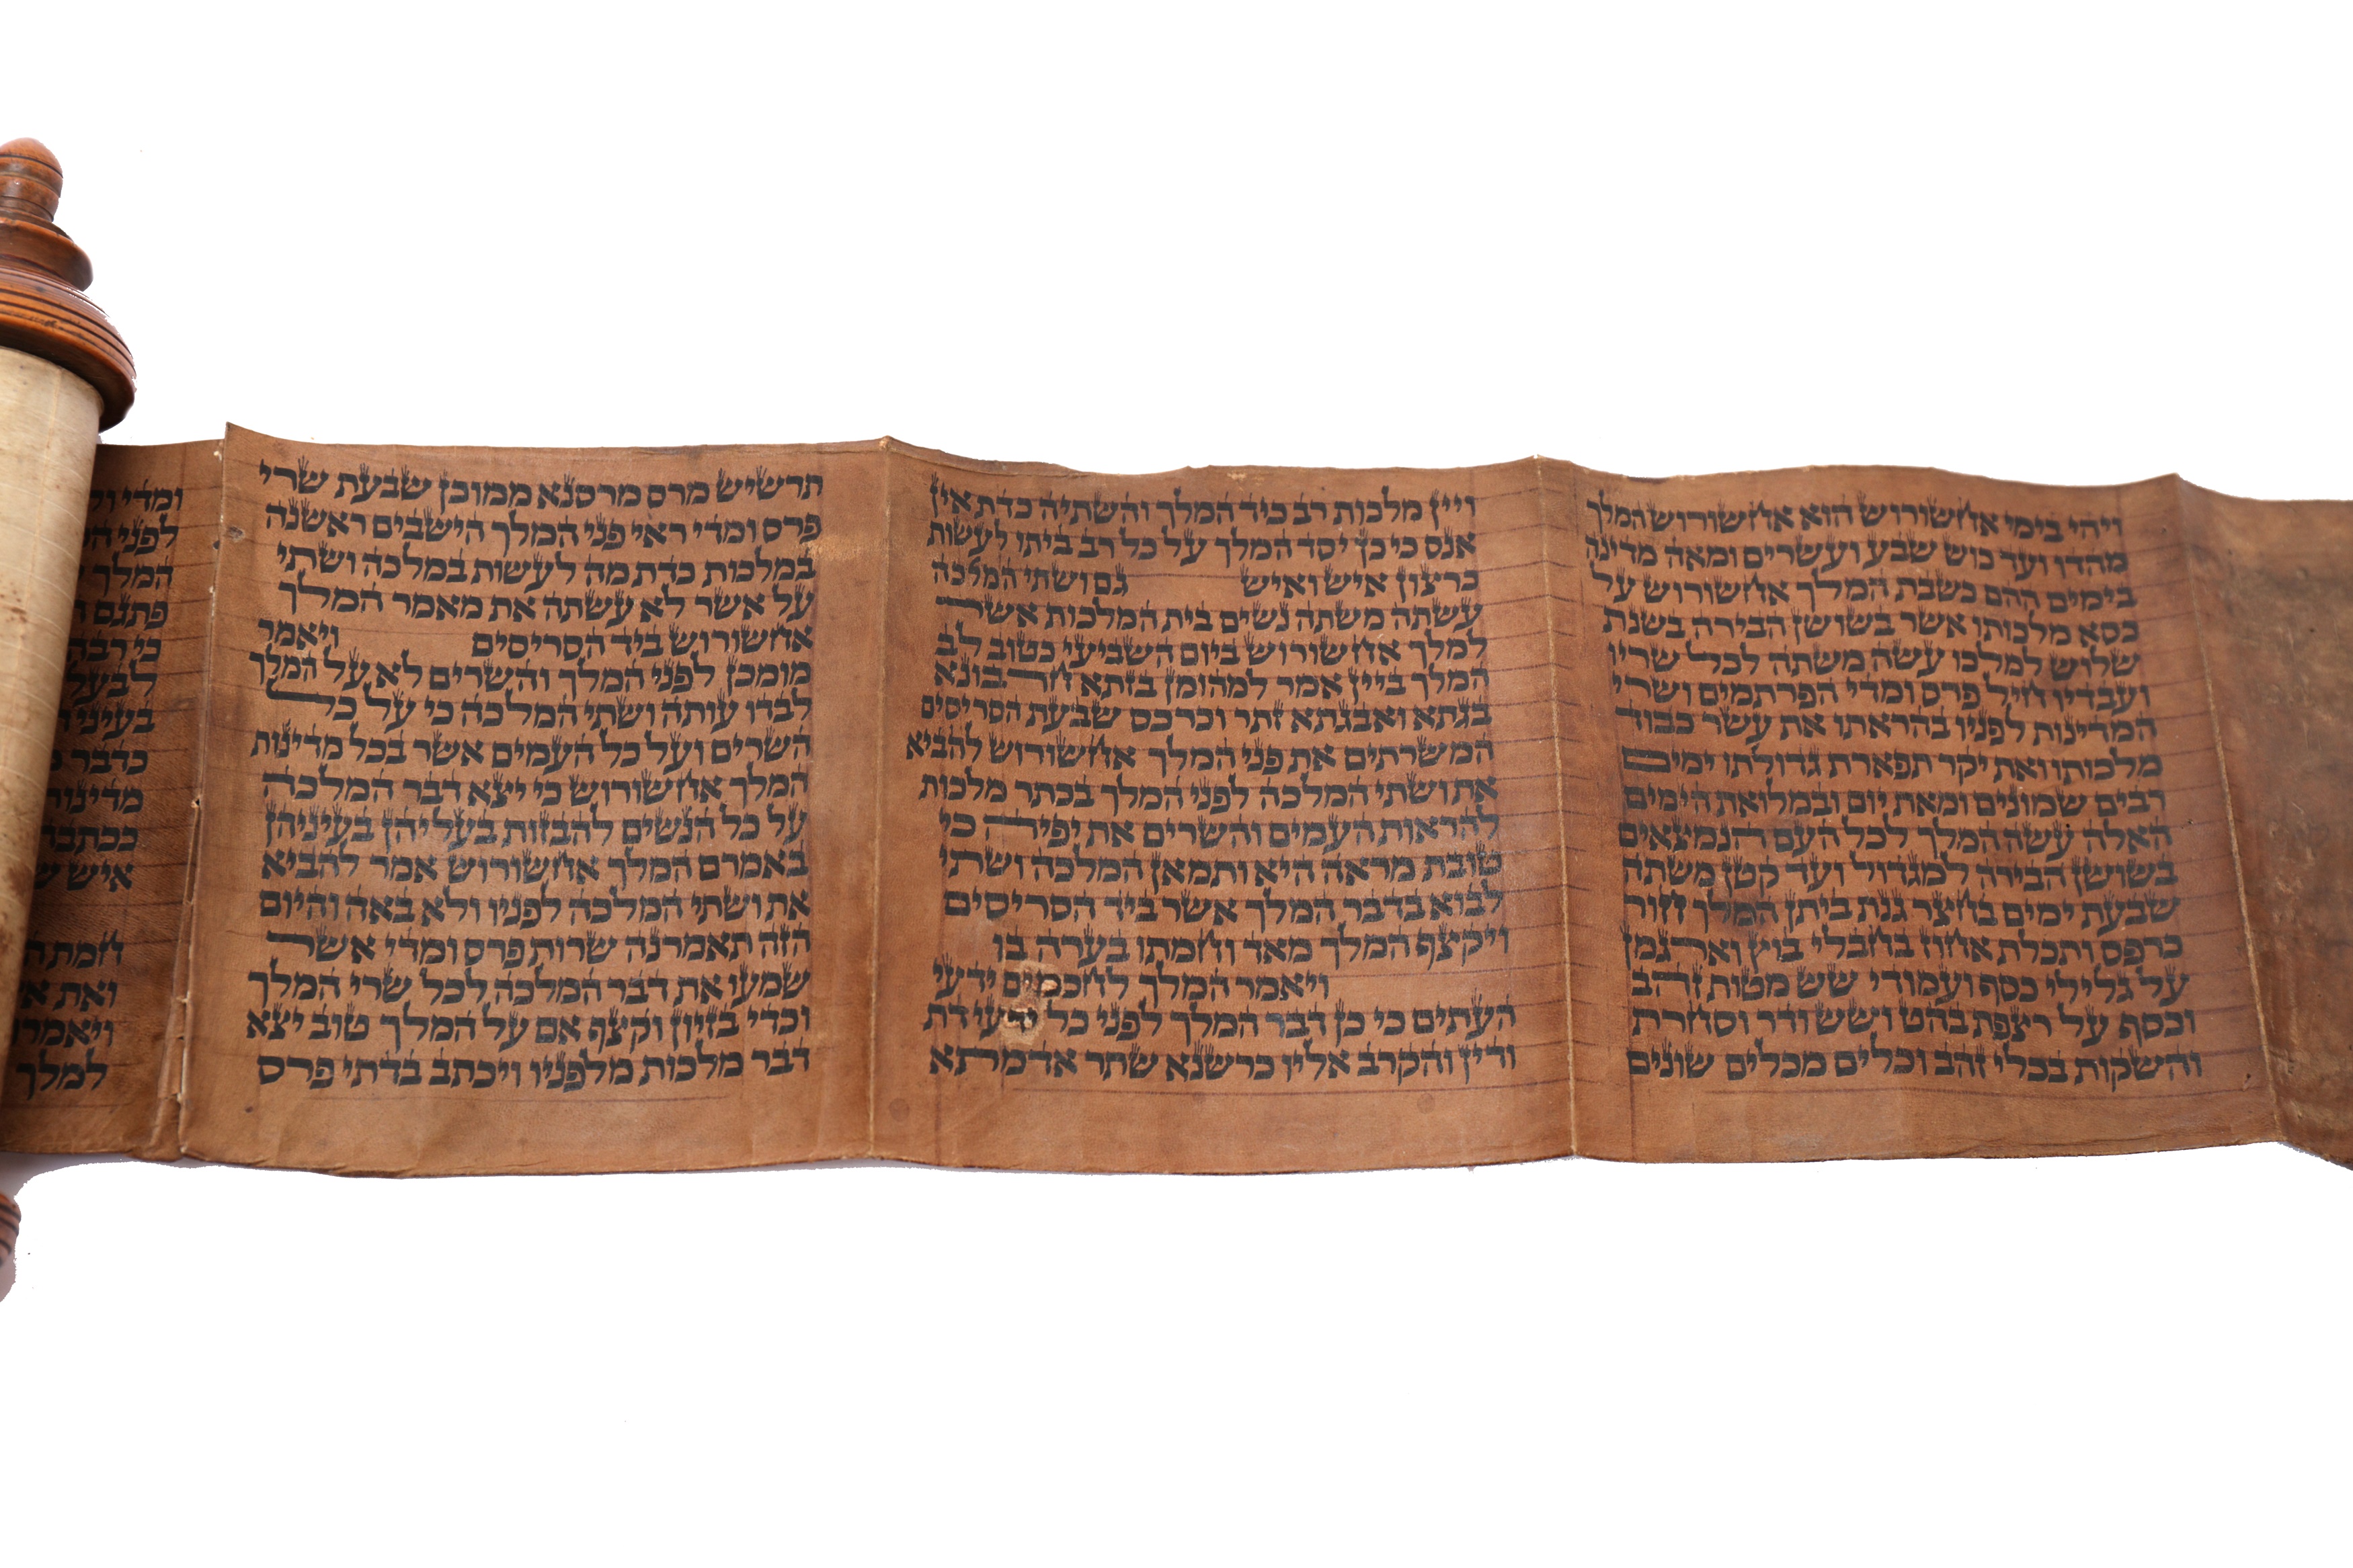 ויהי בימי אחשורוש הוא אחשורוש המלך
מהדו ועד כוש שבע ועשרים ומאה מדינה
בימים ההם כשבת המלך אחשורוש על
כסא מלכותו אשר בשושן הבירה בשנת
שלוש למלכו עשה משתה לכל שריו
ועבדיו חיל פרס ומדי הפרתמים ושרי
המדינות לפניו בהראתו את עשר כבוד
מלכותו ואת יקר תפארת גדולתו ימים
רבים שמונים ומאת יום ובמלואת הימים
האלה עשה המלך לכל העם הנמצאים
בשושן הבירה למגדול ועד קטן משתה
שבעת ימים בחצר גנת ביתן המלך חור
כרפס ותכלת אחוז בחבלי בוץ וארגמן
על גלילי כסף ועמודי שש מטות זהב
וכסף על רצפת בהט ושש ודר וסחרת
והשקות בכלי זהב וכלים מכלים שונים
ויין מלכות רב כיד המלך והשתיה כדת אין
אנס כי כן יסד המלך על כל רב ביתו לעשות
כרצון איש ואיש גם ושתי המלכה
עשתה משתה נשים בית המלכות אשר
למלך אחשורוש ביום השביעי כטוב לב
המלך ביין אמר למהומן בזתא חרבונא
בגתא ואבגתא זתר וכרכס שבעת הסריסים
המשרתים את פני המלך אחשורוש להביא
את ושתי המלכה לפני המלך בכתר מלכות
להראות העמים והשרים את יפיה כי
טובת מראה היא ותמאן המלכה ושתי
לבוא בדבר המלך אשר ביד הסריסים
ויקצף המלך מאד וחמתו בערה בו
ויאמר המלך לחכמים ידעי
העתים כי כן דבר המלך לפני כל ידעי דת
ודין והקרב אליו כרשנא שתר אדמתא
תרשיש מרס מרסנא ממוכן שבעת שרי
פרס ומדי ראי פני המלך הישבים ראשנה
במלכות כדת מה לעשות במלכה ושתי
על אשר לא עשתה את מאמר המלך
אחשורוש ביד הסריסים ויאמר
מומכן לפני המלך והשרים לא על המלך
לבדו עותה ושתי המלכה כי על כל
השרים ועל כל העמים אשר בכל מדינות
המלך אחשורוש כי יצא דבר המלכה
על כל הנשים להבזות בעליהן בעיניהן
באמרם המלך אחשורוש אמר להביא
את ושתי המלכה לפניו ולא באה והיום
הזה תאמרנה שרות פרס ומדי אשר
שמעו את דבר המלכה לכל שרי המלך
וכדי בזיון וקצף אם על המלך טוב יצא
דבר מלכות מלפניו ויכתב בדתי פרס
ומדי
לפני
המלך
פתגם
כי רבה
לבעל
בעיני
כדבר
מדינות
ככתב
איש
חמת
ואת
ויאמרו
למלך